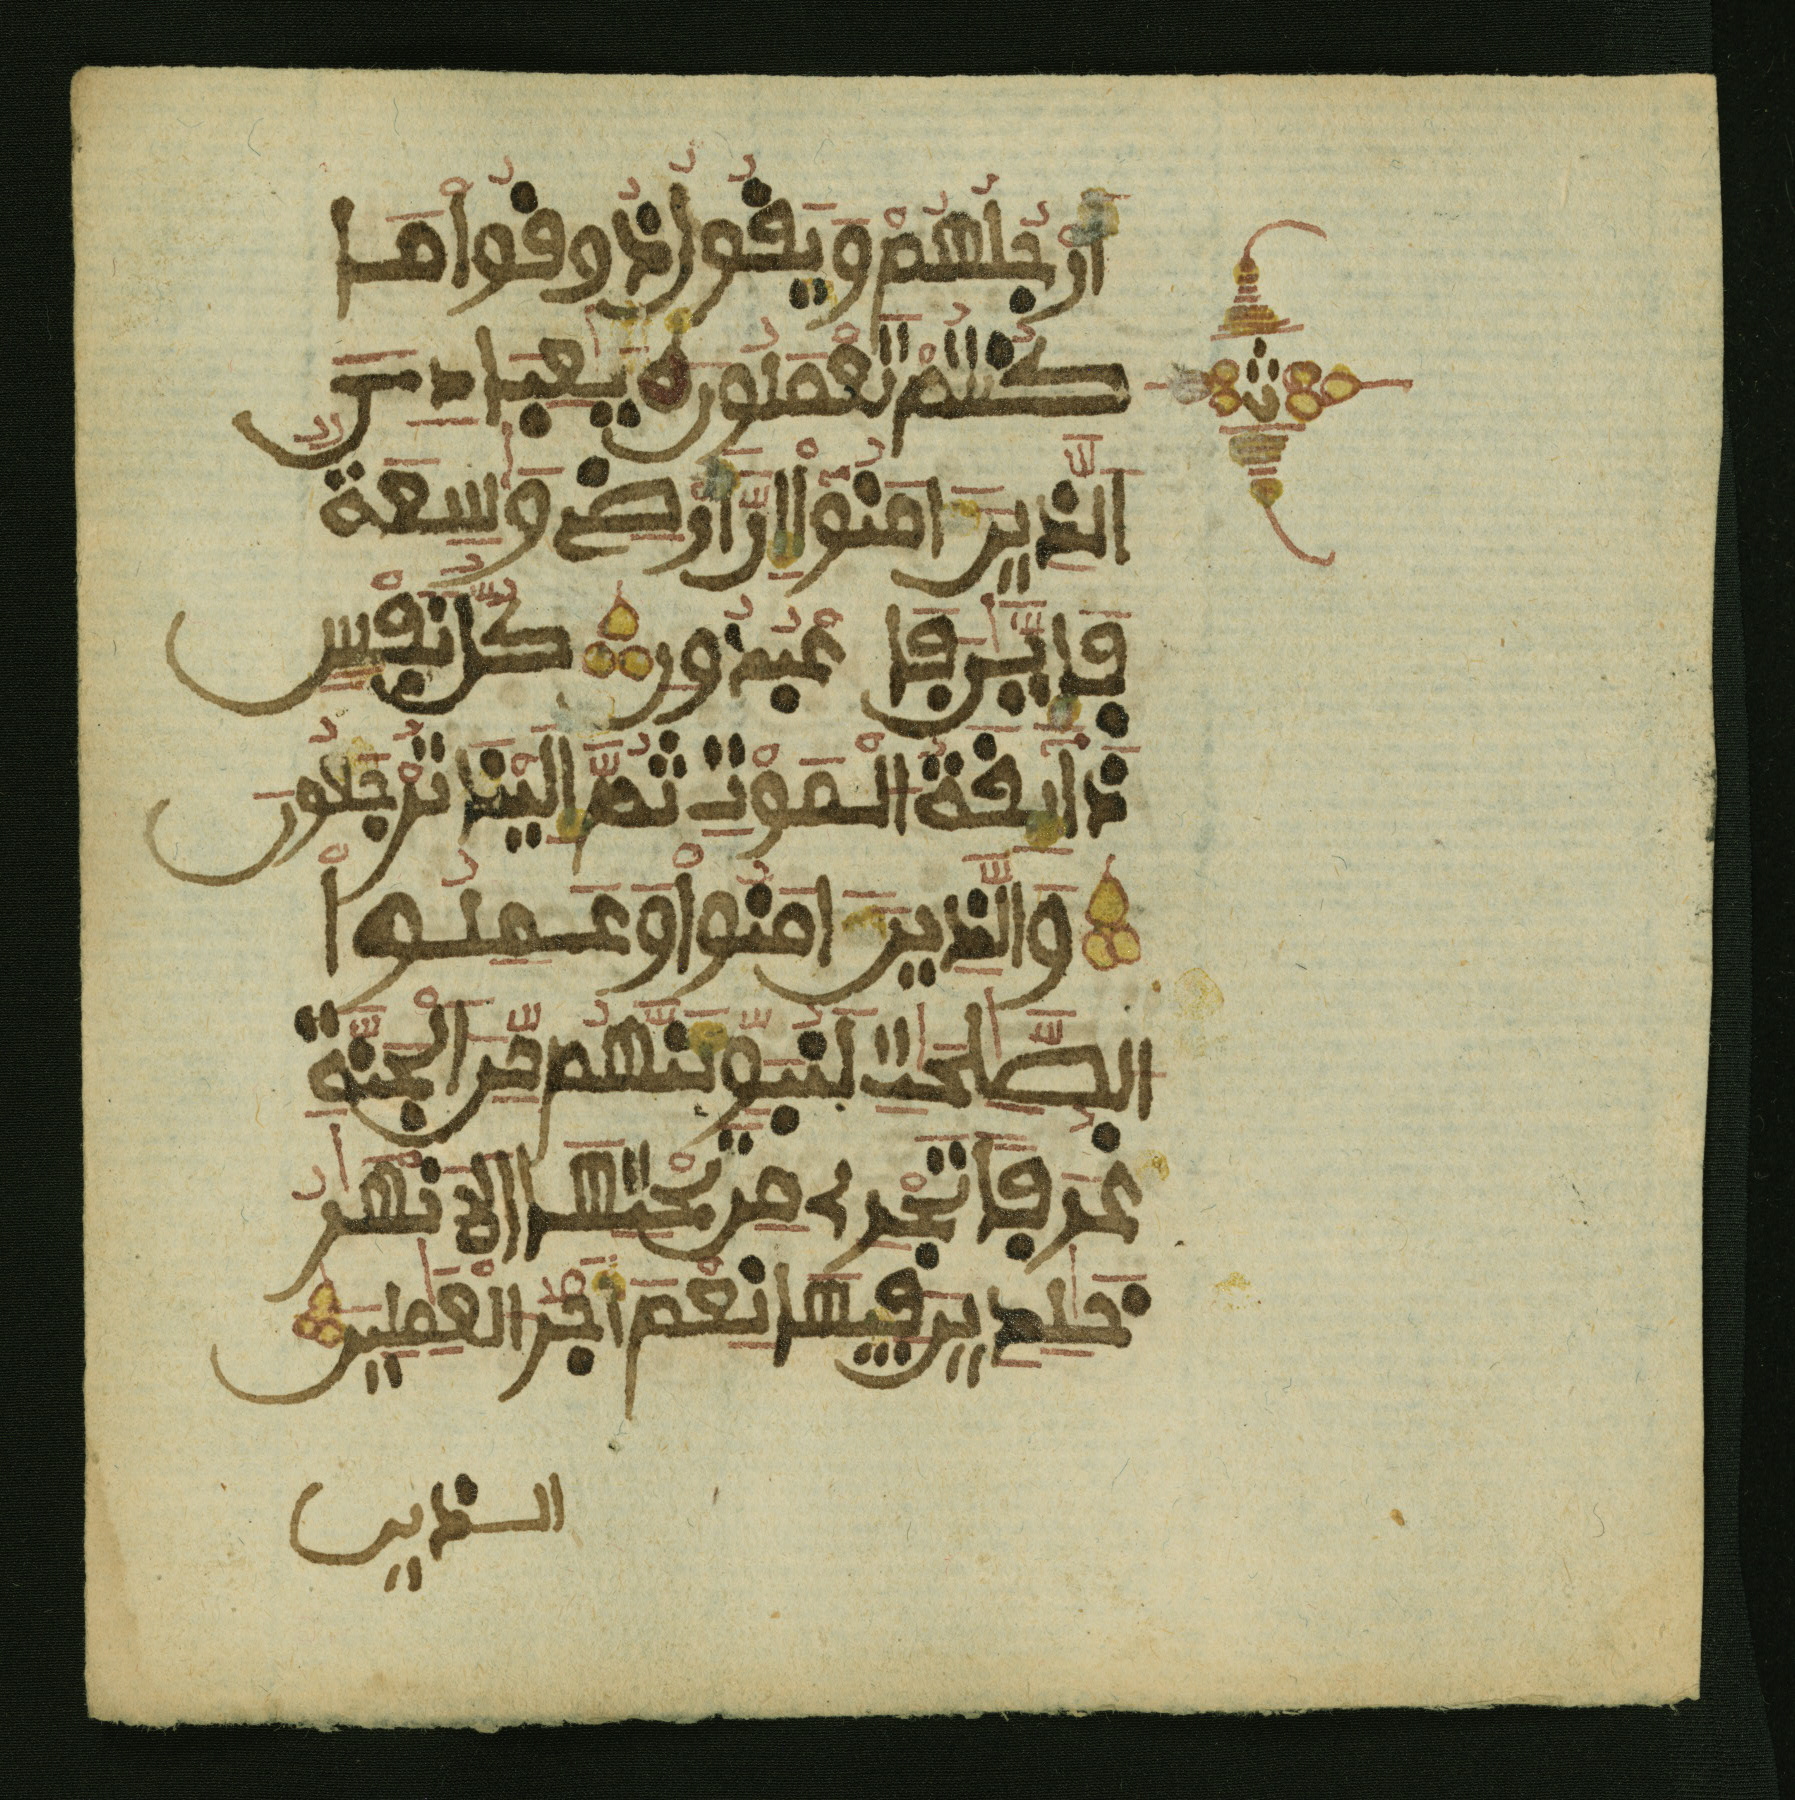 أَرْجُلِهِمْ وَيَقُولُ ذُوقُواْ مَا
كُنتُمْ تَعْمَلُونَ يَعِبَادِيَ
ث
الَّذِينَ امَنُواْ إِنَّ أَرْضِے وَسِعَةٌ
فَإِيَّيَ فَاعْبُدُونِ كُلُّ نَفْسٍ
ذَائِقَةُ الْمَوْتِ ثُمَّ إِلَيْنَا تُرْجَعُونَ
وَالَّذِينَ امَنُواْ وَعَمِلُواْ
الصَّلِحَتِ لَنُبَوِّئَنَّهُم مِّنَ الْجَنَّةِ
غُرَفًا تَجْرِے مِن تَحْتِهَا الَانْهَرُ
خَلِدِينَ فِيهَا نِعْمَ أَجْرُ الْعَمِلِينَ
الذين